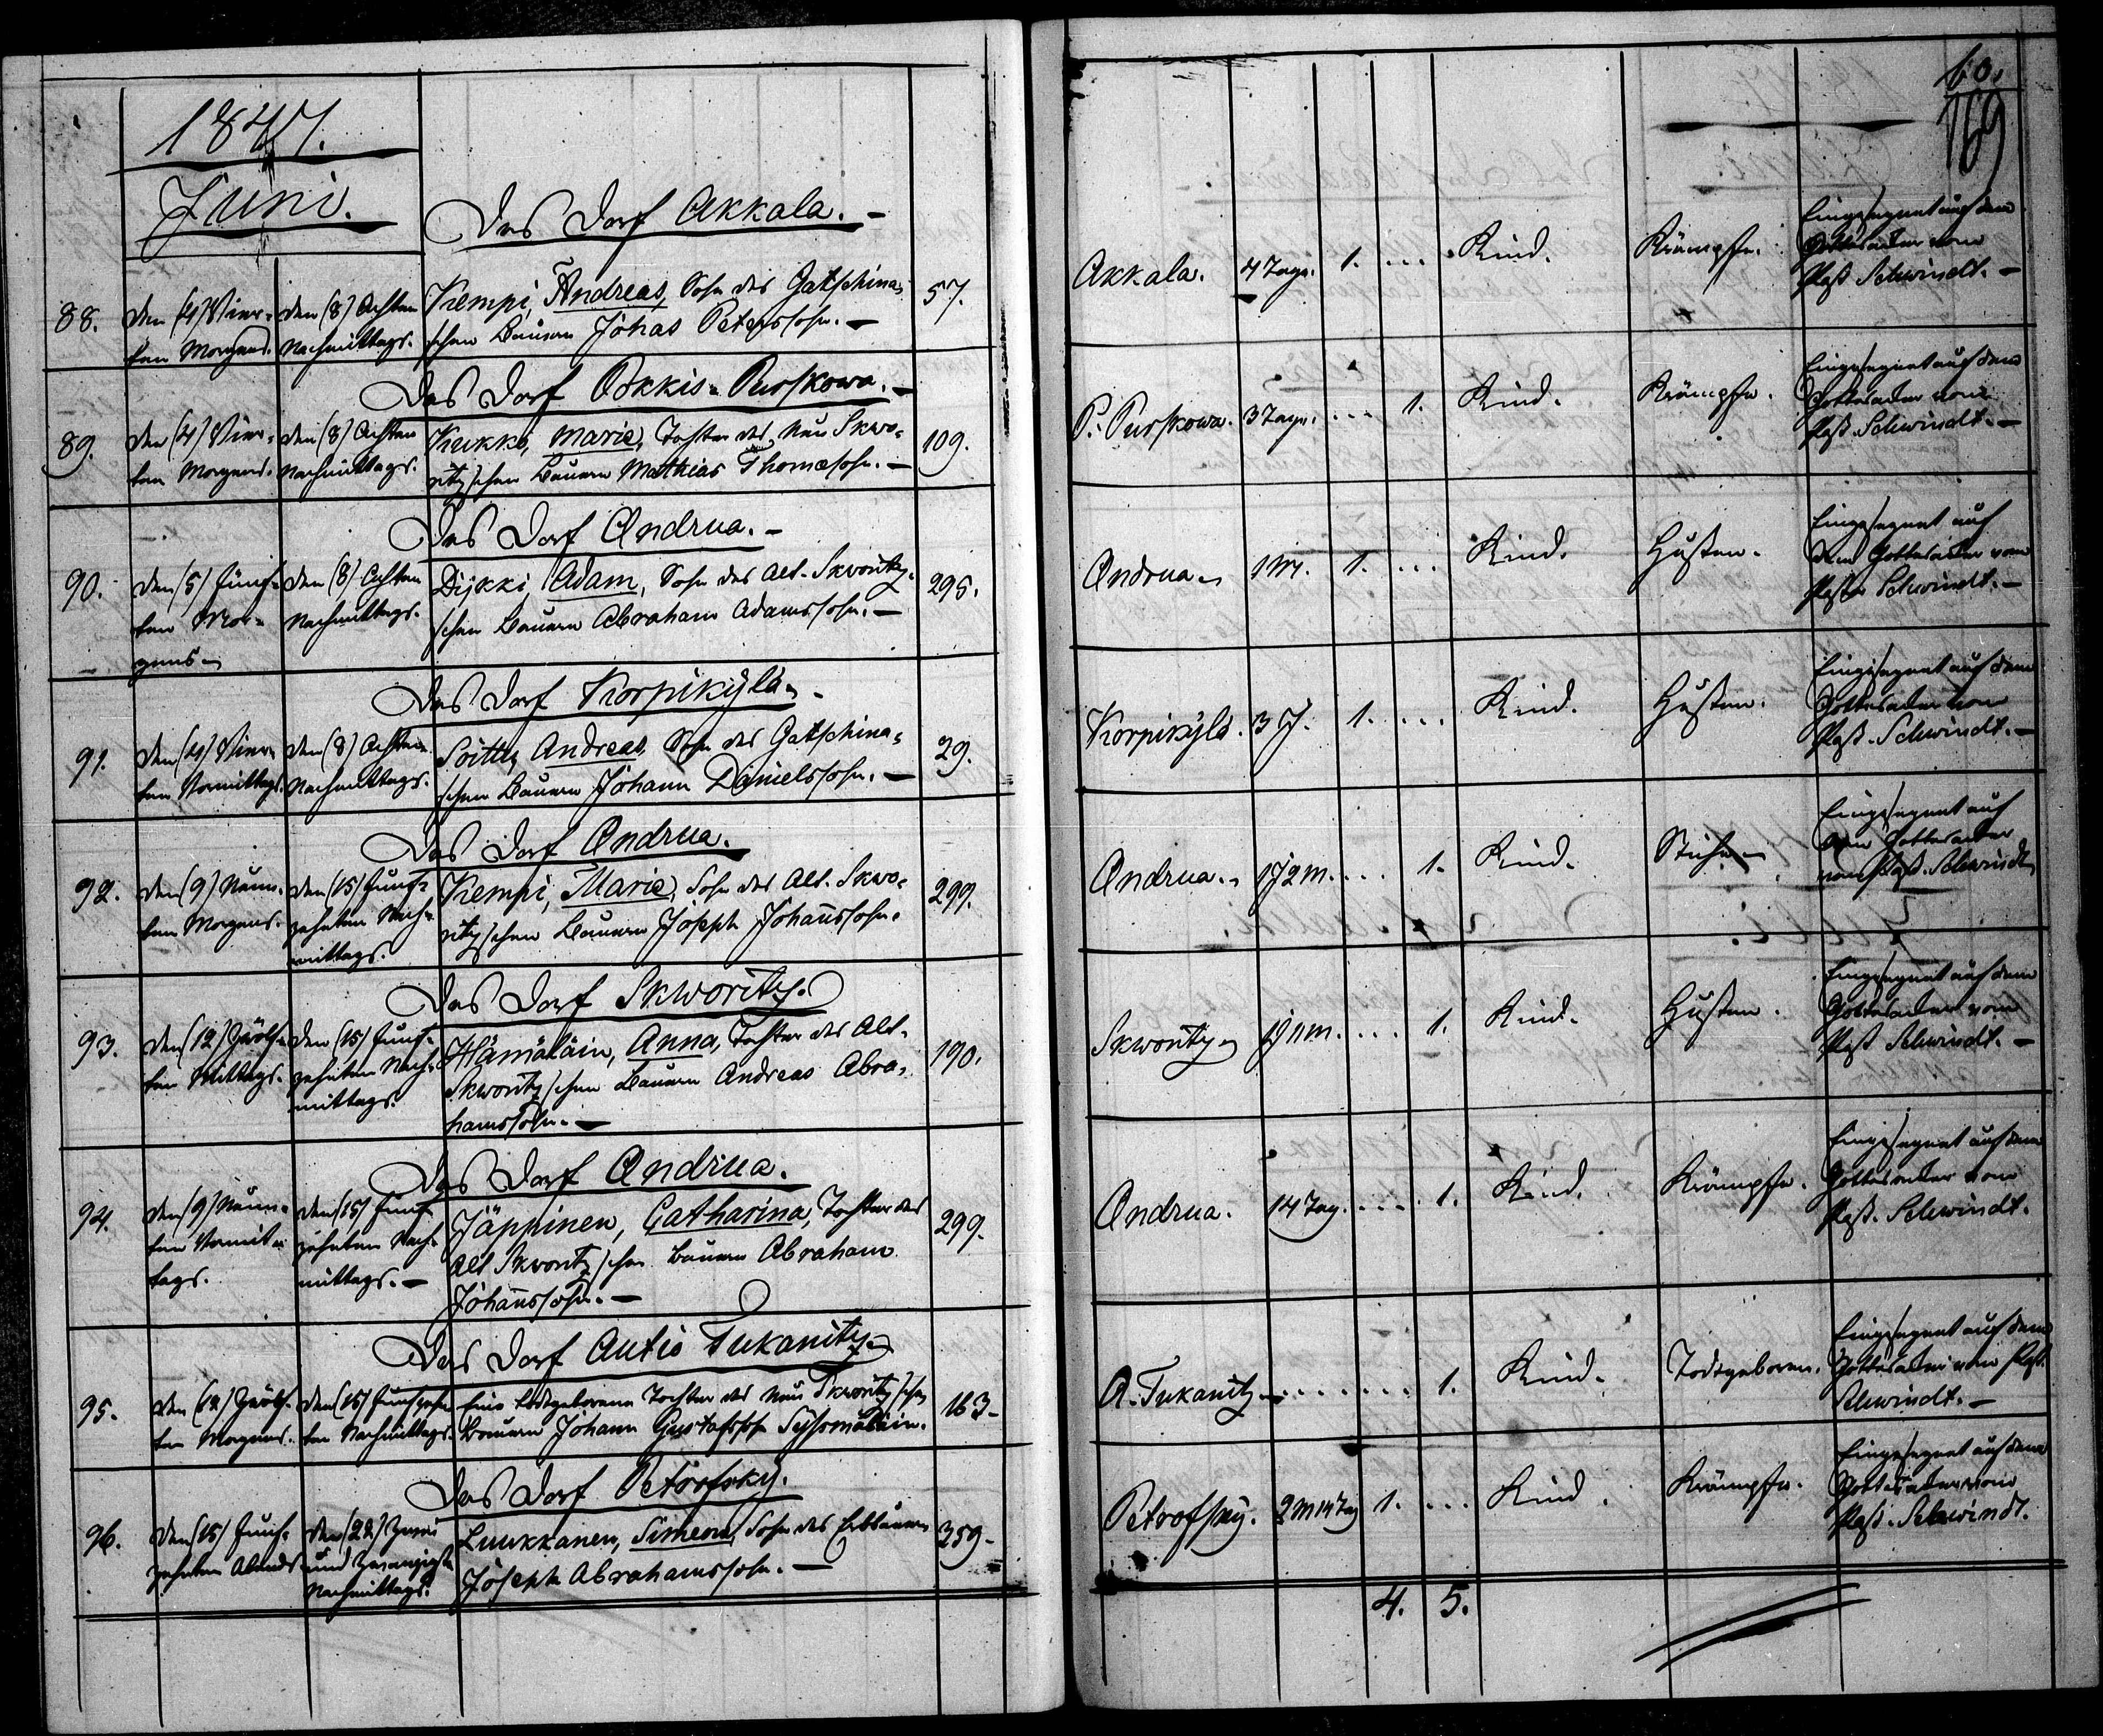 1847.
Juni.
Das Dorf Akkala. –
88. den (4) Vier- den (8) Achten Kempi, Andreas, Sohn des Gatschina- 57.
ten Morgens. Nachmittags. schen Bauern Johas Peterssohn. –
Das Dorf Pokkis-Purskowa. –
89. den (4) Vier- den (8) Achten Kukko, Marie, Tochter des Neu Skwo- 109.
ten Morgens. Nachmittags. ritzschen Bauern Mathias Thomæsohn. –
Das Dorf Andrua. –
90. den (5) Fünf- den (8) Achten Dijkki, Adam, Sohn des Alt-Skworitz- 295.
ten Mor- Nachmittags. schen Bauern Abraham Adamssohn. –
gens
Das Dorf Korpikÿlä. –
91. den (4) Vier- den (8) Achten Soittu, Andreas, Sohn des Gatschina- 29.
ten Vormittags. Nachmittags. schen Bauern Johann Danielssohn. –
Das Dorf Andrua.
92. den (9) Neun- den (15) Funf- Kempi, Marie, Sohn des Alt. Skwo- 299.
ten Morgens. zehnten Nach- ritzschen Bauern Joseph Johañssohn.
mittags.
Das Dorf Skworitz.
93. den (12) Zwölf- den (15) Funf- Hämäläin, Anna, Tochter des Alt- 190.
ten Mittags. zehnten Nach- Skworitzschen Bauern Andreas Abra-
mittags. hamssohn. –
Das Dorf Andrua.
94. den (9) Neun- den (15) Funf- Jäppinen, Catharina, Tochter des 299.
ten Vormit- zehnten Nach- Alt Skworitzschen Bauern Abraham
tags. mittags. – Johañssohn. –
Das Dorf Autio Tukanitz
95. den (12) Zwölf- den (15) Funfzehn- Eine todtgeborene Tochter des Neu Skworitzschen 163.
ten Morgens. ten Nachmittags. Bauern Johann Gustafssohn
Das Dorf Petrofsky.
96. den (15) Funf- den (22) Zwei Luukkanen, Simeon, Sohn des Erbbauern 359.
zehnten Abends und zwanzigsten Joseph Abrahamssohn. –
Nachmittags.
60.
169
Akkala. 4 Tage. 1. ... Kind. Krämpfe. Eingesegnet auf dem
Gottesacker vom
Past. Schwindt. –
P. Purskowa. 3 Tage. ... 1. Kind. Krämpfe. Eingesegnet auf dem
Gottesacker vom
Past. Schwindt. –
Andrua. 1 M. 1. ... Kind. Husten. Eingesegnet auf
dem Gottesacker vom
Past. Schwindt. –
Korpikÿlä. 3 J. 1. ... Kind. Husten. Eingesegnet auf dem
Gottesacker vom
Past. Schwindt. –
Andrua. 1 J 2 M. ... 1. Kind. Eingesegnet auf
dem Gottesacker
vom Past. Schwindt
Skworitz 1 J 11 M. ... 1. Kind. Husten. Eingesegnet auf dem
Gottesacker vom
Past Schwindt. –
Andrua. 14 Tag. ... 1. Kind. Krämpfe. Eingesegnet auf dem
Gottesacker vom
Past. Schwindt.
A. Tukanitz ... 1. Kind. Todtgeboren. Eingesegnet auf dem
Gottesacker vom Past.
Schwindt. –
Petrofsky. 2 M 14 Tag 1. ... Kind. Krämpfe. Eingesegnet auf dem
Gottesacker vom
Past. Schwindt.
4. 5.